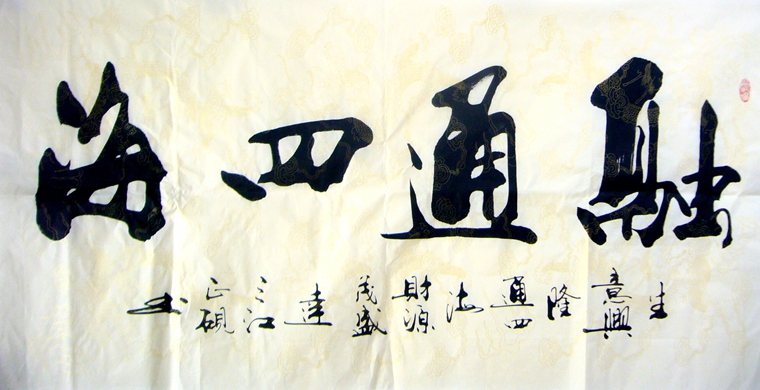 融通四海
生意興隆通四海財源茂盛達三江正硯书